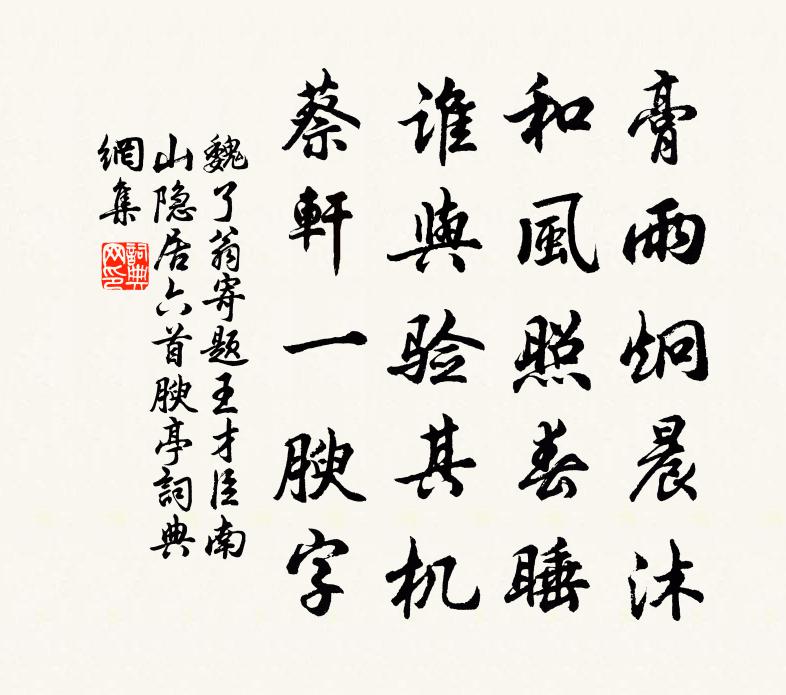 膏雨炯晨沐
和風照春睡
誰與验其机
蔡軒一腴字
魏了翁寄題王才臣南
山隐居六首腴亭詞典
網集
詞典
网印